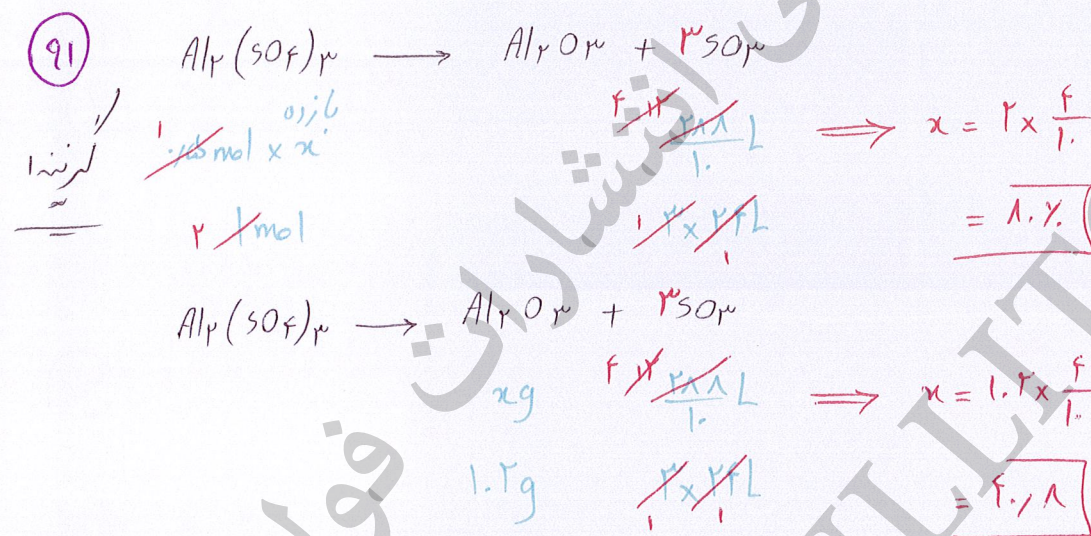 ۹۱ Al۲(SO۴)۳ → Al۲O۳ + ۳SO۳
گزینه ۱
بازده
۰٫۵ mol × x ۱ ۴ ۱۲ ۲۸۸/۱۰ L ⇒ x = ۲ × ۴/۱۰
۲ ۱ mol ۱ ۳ × ۲۴ L ۱ = ۸۰٪
Al۲(SO۴)۳ → Al۲O۳ + ۳SO۳
xg ۴ ۱۲ ۲۸۸/۱۰ L ⇒ x = ۱۰۲ × ۴/۱۰
۱۰۲g ۳ × ۲۴ L ۱ ۱ = ۴۰٫۸
انتشارات